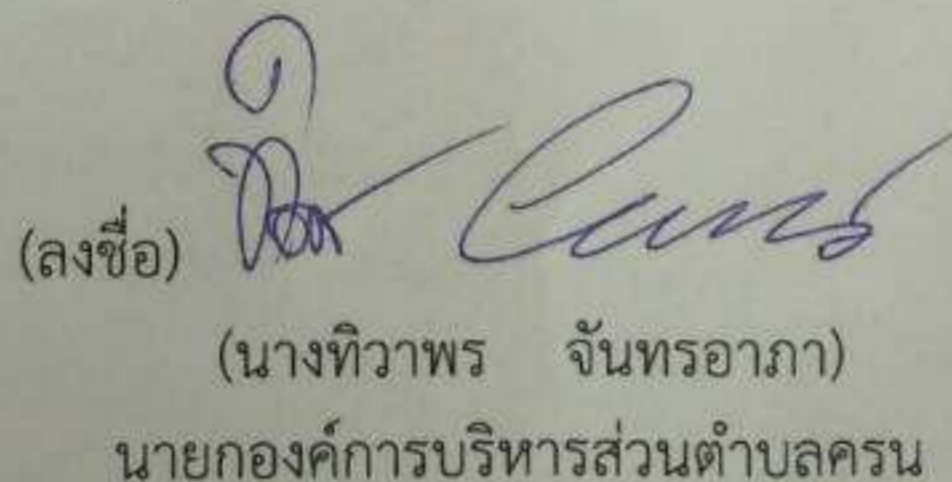 (ลงชื่อ)
(นางทิวาพร จันทรอาภา)
นายกองค์การบริหารส่วนตำบลครน